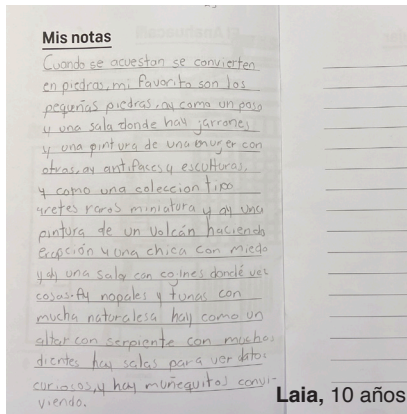 Mis notas
Cuando se acuestan se convierten
en piedras, mi favorito son los
pequeñas piedras, ay como un paso
y una sala donde hay jarrones
y una pintura de una muger con
otras, ay antifaces y esculturas,
y como una coleccion tipo
aretes raros miniatura y ay una
pintura de un volcán haciendo
erupción y una chica con miedo
y ay una sala con cojines donde ves
cosas. Ay nopales y tunas con
mucha naturalesa hay como un
altar con serpiente con muchos
dientes hay salas para ver datos
curiosos, y hay muñequitos convi-
viendo.
Laia, 10 años